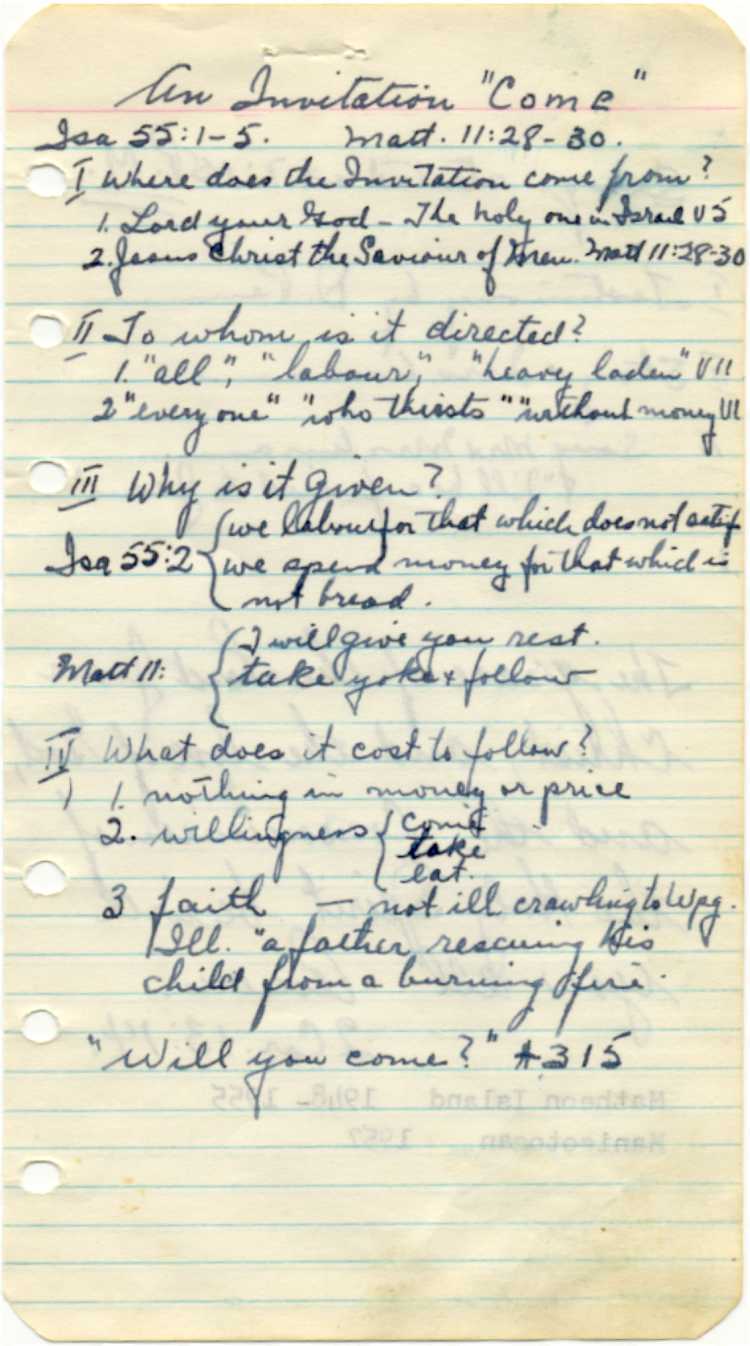 An Invitation "Come"
Isa 55:1-5. Matt. 11:28-30.
I Where does the Invitation come from?
1. Lord your God - The holy one in Israel V5
2. Jesus Christ the Saviour of Men. Matt 11:28-30
II To whom is it directed?
1. "all", "labour", "heavy laden" V11
2 "every one" "who thirsts" "without money V1
III Why is it given?
we labour for that which does not satisf
Isa 55:2 we spend money for that which is
not bread.
I will give you rest.
Matt 11: take yoke & follow
IV What does it cost to follow?
1. nothing in money or price
2. willingness come
take
eat.
3 faith — not ill crawling to Wpg.
Ill. "a father rescuing his
child from a burning fire.
"Will you come?" #315
Matheson Island 1948-1955
Manigotogan 1957